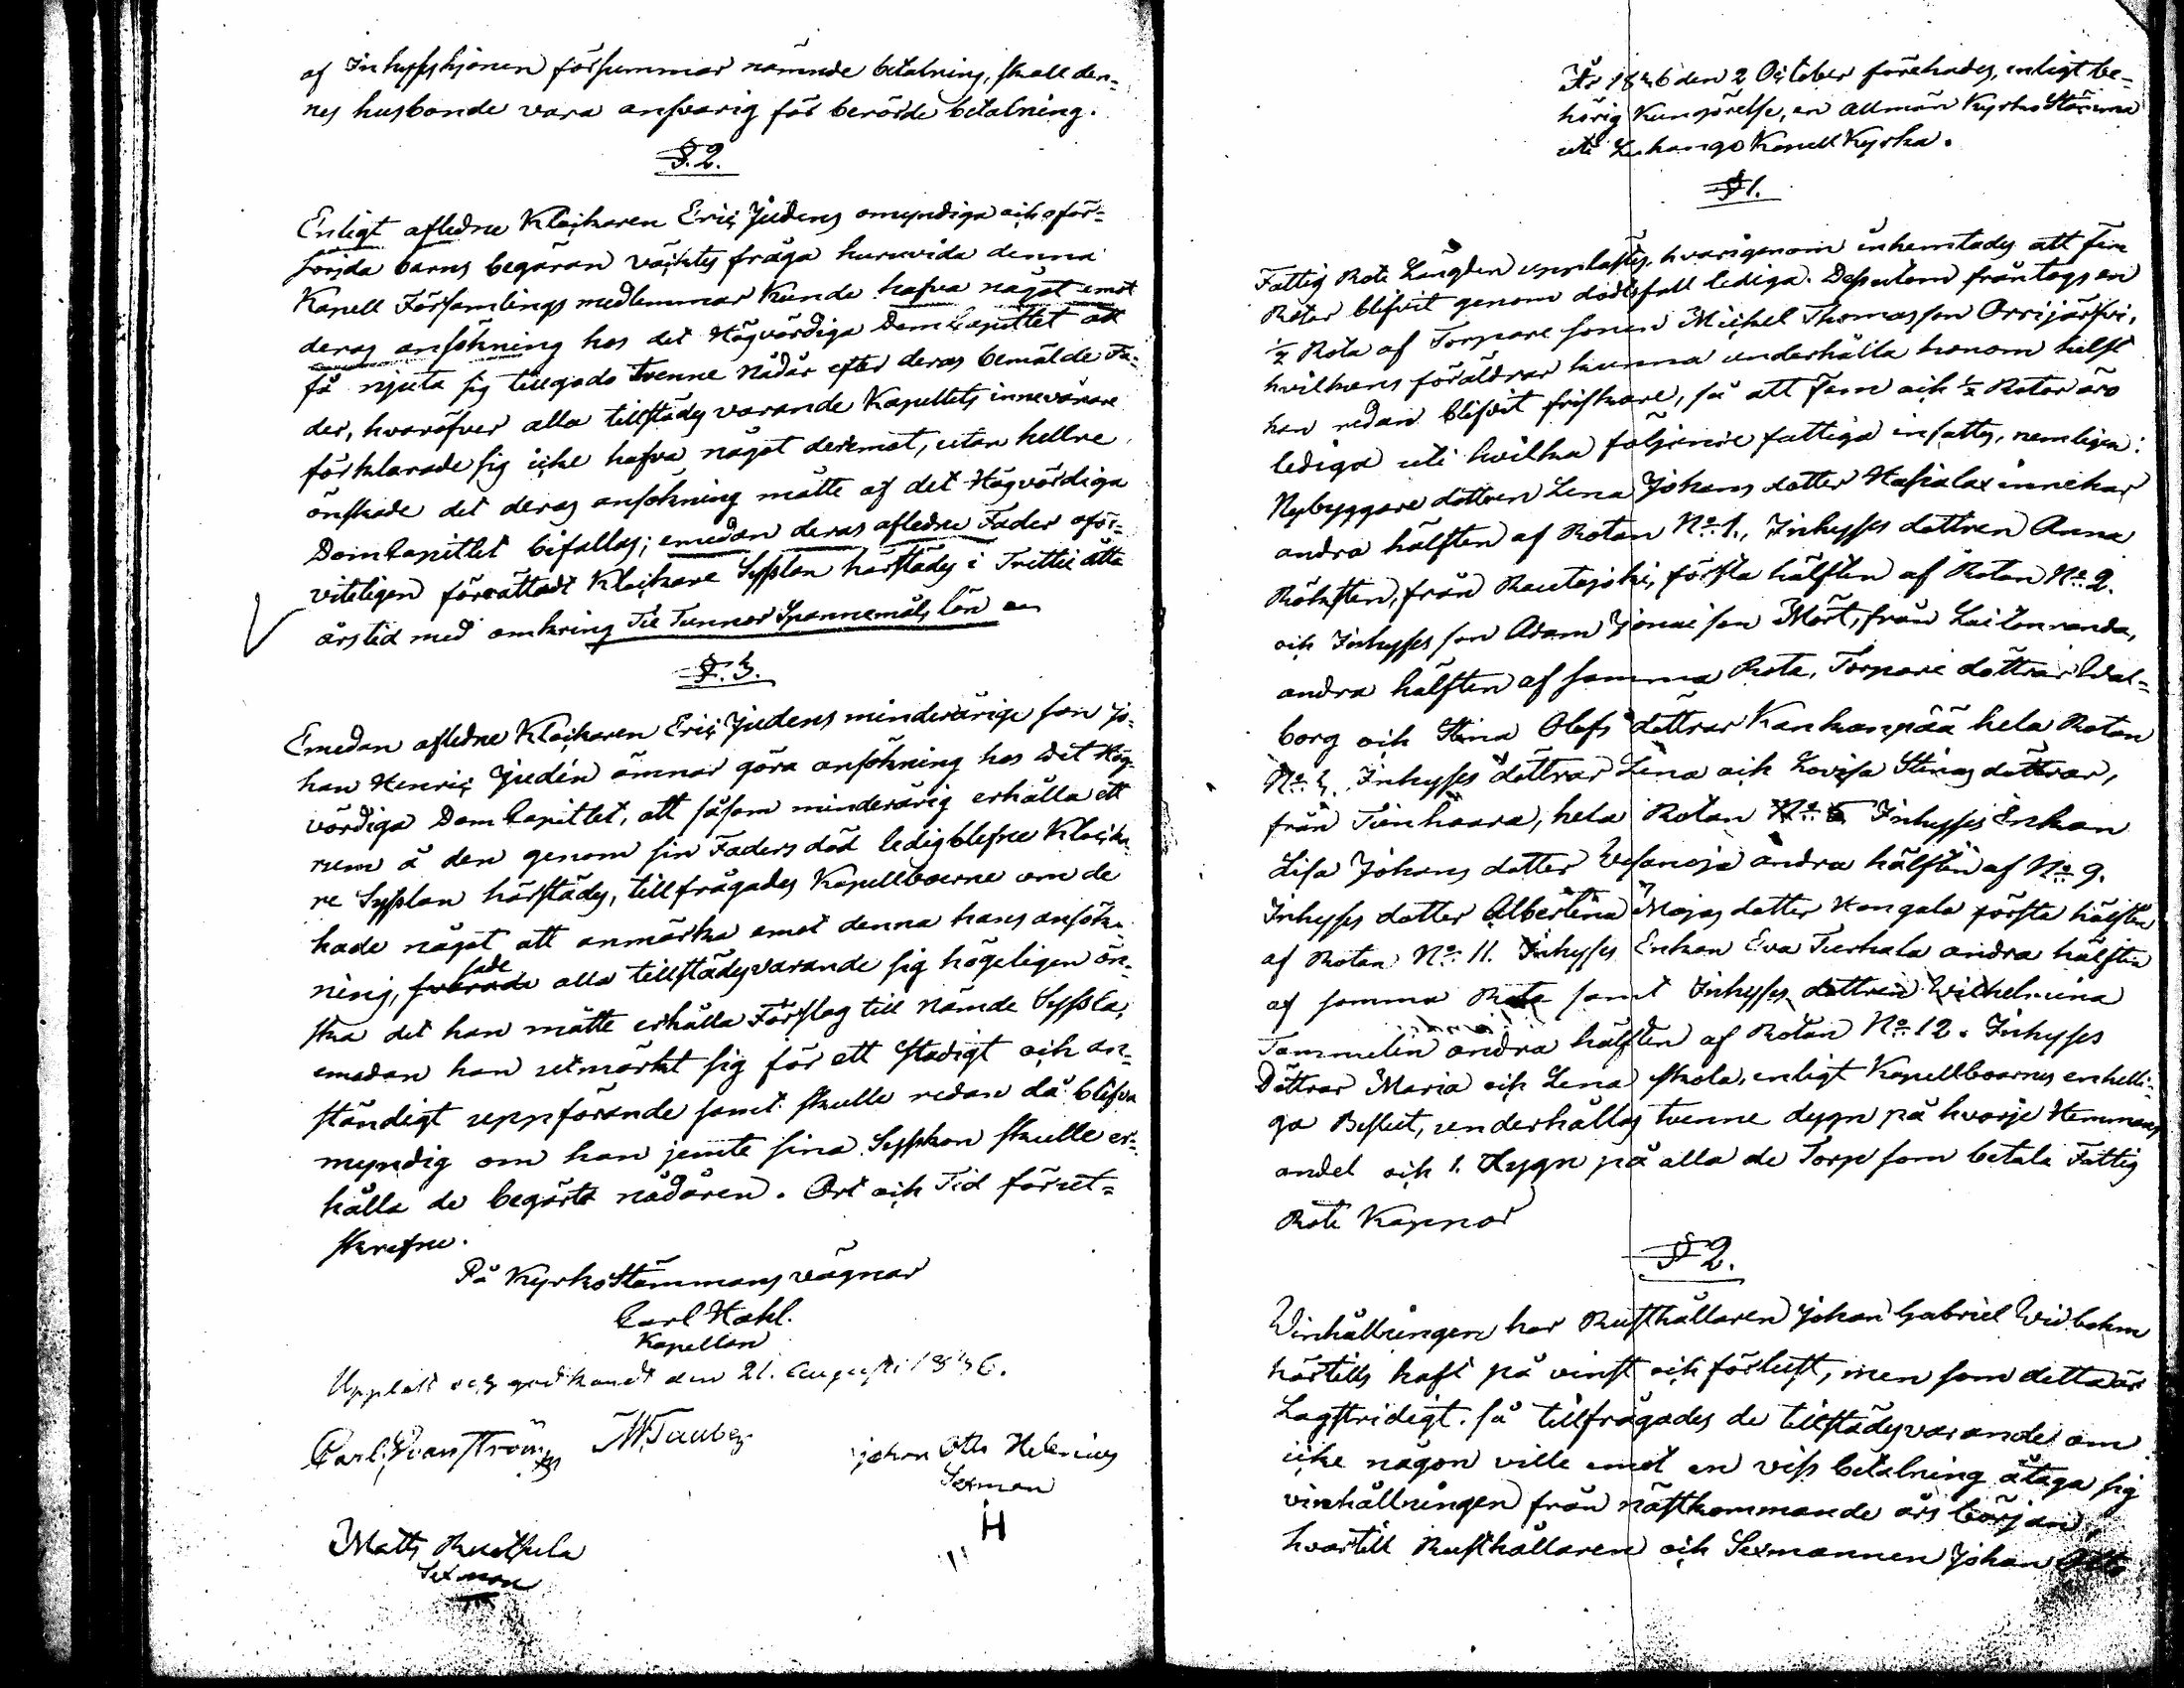 af Inhysshjonen försummar nämnde betalning, skall den-
nes husbonde vara ansvarig för berörde betalning.
§. 2.
Enligt aflidne Klockaren Eric Judens omyndiga och oför-
sörjda barns begäran väcktes fråga huruvida denna
Kapell Församlings medlemmar kunde hafva något emot
deras ansökning hos det Högvördiga DomCapittlet att
få njuta sig tillgodo tvenne Nådår efter deras bemälde Fa-
der, hvaröfver alla tillstädes varande Kapellets innevånare
förklarade sig icke hafva något deremot, utan hellre
önskade det deras ansökning måtte af det Högvördiga
DomCapitlet bifallas; emedan deras aflidne Fader oför-
viteligen förrättadt Klockare Sysslan härstädes i Trettio åtta
årstid med omkring Tio Tunnor Spannemåls lön
§. 3.
Emedan aflidne Klockaren Eric Judens minderårige son Jo-
han Henric Judén ämnar göra ansökning hos Det Hög-
vördiga DomCapitlet, att såsom minderårig erhålla ett
rum å den genom sin Faders död ledigblefne Klocka-
re Sysslan härstädes, tillfrågades Kapellboerne om de
hade något att anmärka emot denna hans ansök-
ning, svarade sade alla tillstädesvarande sig högeligen ön-
ska det han måtte erhålla Förslag till nämde Syssla,
emedan han utmärkt sig för ett stadigt och an-
ständigt uppförande samt skulle redan då blifva
myndig om han jemte sina Syskon skulle er-
hålla de begärte nådåren. Ort och Tid förut-
skrefne.
På KyrkoStämmans vägnar
Carl Hahl.
Kapellan
Uppläst och godkändt den 21. Augusti 1846.
Carl Qvanström
Johan Otto Helenius
Sexman
H
Matts
Sexman
År 1846 den 2 October förehades, enligt be-
hörig Kungörelse, en allmän KyrkoStämma
uti Kapell Kyrka.
§ 1.
Fattig Rote Längden upplästes, hvarigenom inhemtades att fem
Rotar blifvit genom dödsfall lediga. Dessutom fråntogs en
½ Rota af Torpare sonen Michel Thomasson Orrijärfvi,
hvilkens föräldrar kunna underhålla honom helst
han redan blifvit friskare, så att fem och ½ Rotar äro
lediga uti hvilka följande fattiga insattes, nemligen:
Nybyggare dottren Lena Johans dotter innehar
andra hälften af Rotan No 1., Inhyses dottren Anna
från Rautajoki, första hälften af Rotan No 2.
och Inhyses son Adam Jonae son Mört, från
andra hälften af samma Rota, Torpare döttrar Wal-
borg och Stina Olofs döttrar Kankanpää hela Rotan
No 3. Inhyses döttrar Lena och Lovisa Stinas döttrar,
från Tienhaara, hela Rotan No 6 Inhyses Enkan
Lisa Johans dotter Vesanoja andra hälften af No 9.
Inhyses dotter Albertina Majas dotter Hongala första hälften
af Rotan No 11. Inhyses Enkan Eva andra hälften
af samma Rota samt Inhyses dottren Wilhelmina
Tammelin andra hälften af Rotan No 12. Inhyses
Döttrar Maria och Lena skola, enligt Kapellboarnes enhelli-
ga Beslut, underhållas tvenne dygn på hvarje Hemmans
andel och 1. Dygn på alla de Torp som betala Fattig
Rote Kappar
§ 2.
Vinhållningen har Rusthållaren Johan Gabriel Widbohm
härtills haft på vinst och förlust, men som detta är
Lagstridigt. så tillfrågades de tillstädesvarande om
icke någon ville emot en viss betalning åtaga sig
vinhållningen från nästkommande års början,
hvartill Rusthållaren och Sexmannen Johan Otto